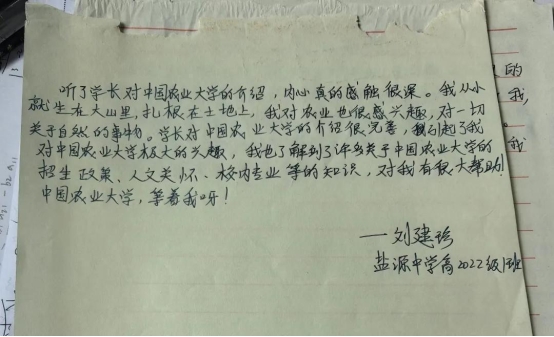 听了学长对中国农业大学的介绍，内心真的感触很深。我从小
就生在大山里，扎根在土地上，我对农业也很感兴趣，对一切
关于自然的事物。学长对中国农业大学的介绍很完善，引起了我
对中国农业大学极大的兴趣，我也了解到了许多关于中国农业大学的
招生政策、人文关怀、校内专业等的知识，对我有很大帮助！
中国农业大学，等着我呀！
一刘建珍
盐源中学高2022级1班
的
我，
我